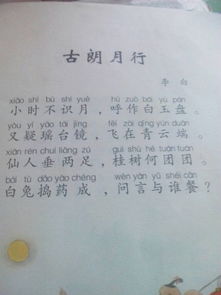 古朗月行
李白
xiǎo shí bù shí yuè hū zuò bái yù pán
小时不识月，呼作白玉盘。
yòu yí yáo tái jìng fēi zài qīng yún duān
又疑瑶台镜，飞在青云端。
xiān rén chuí liǎng zú guì shù hé tuán tuán
仙人垂两足，桂树何团团。
bái tù dǎo yào chéng wèn yán yǔ shéi cān
白兔捣药成，问言与谁餐？